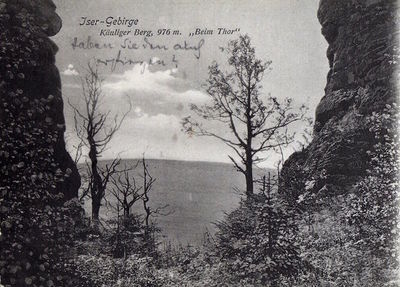 Iser-Gebirge
Käuliger Berg, 976 m. „Beim Thor"
Haben Sie den auf